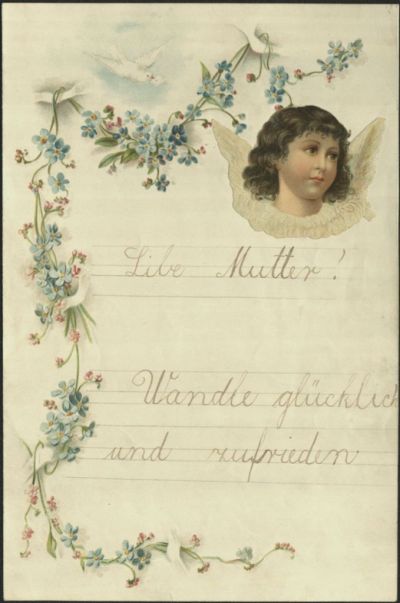 Libe Mutter!
Wandle glücklich
und zufrieden